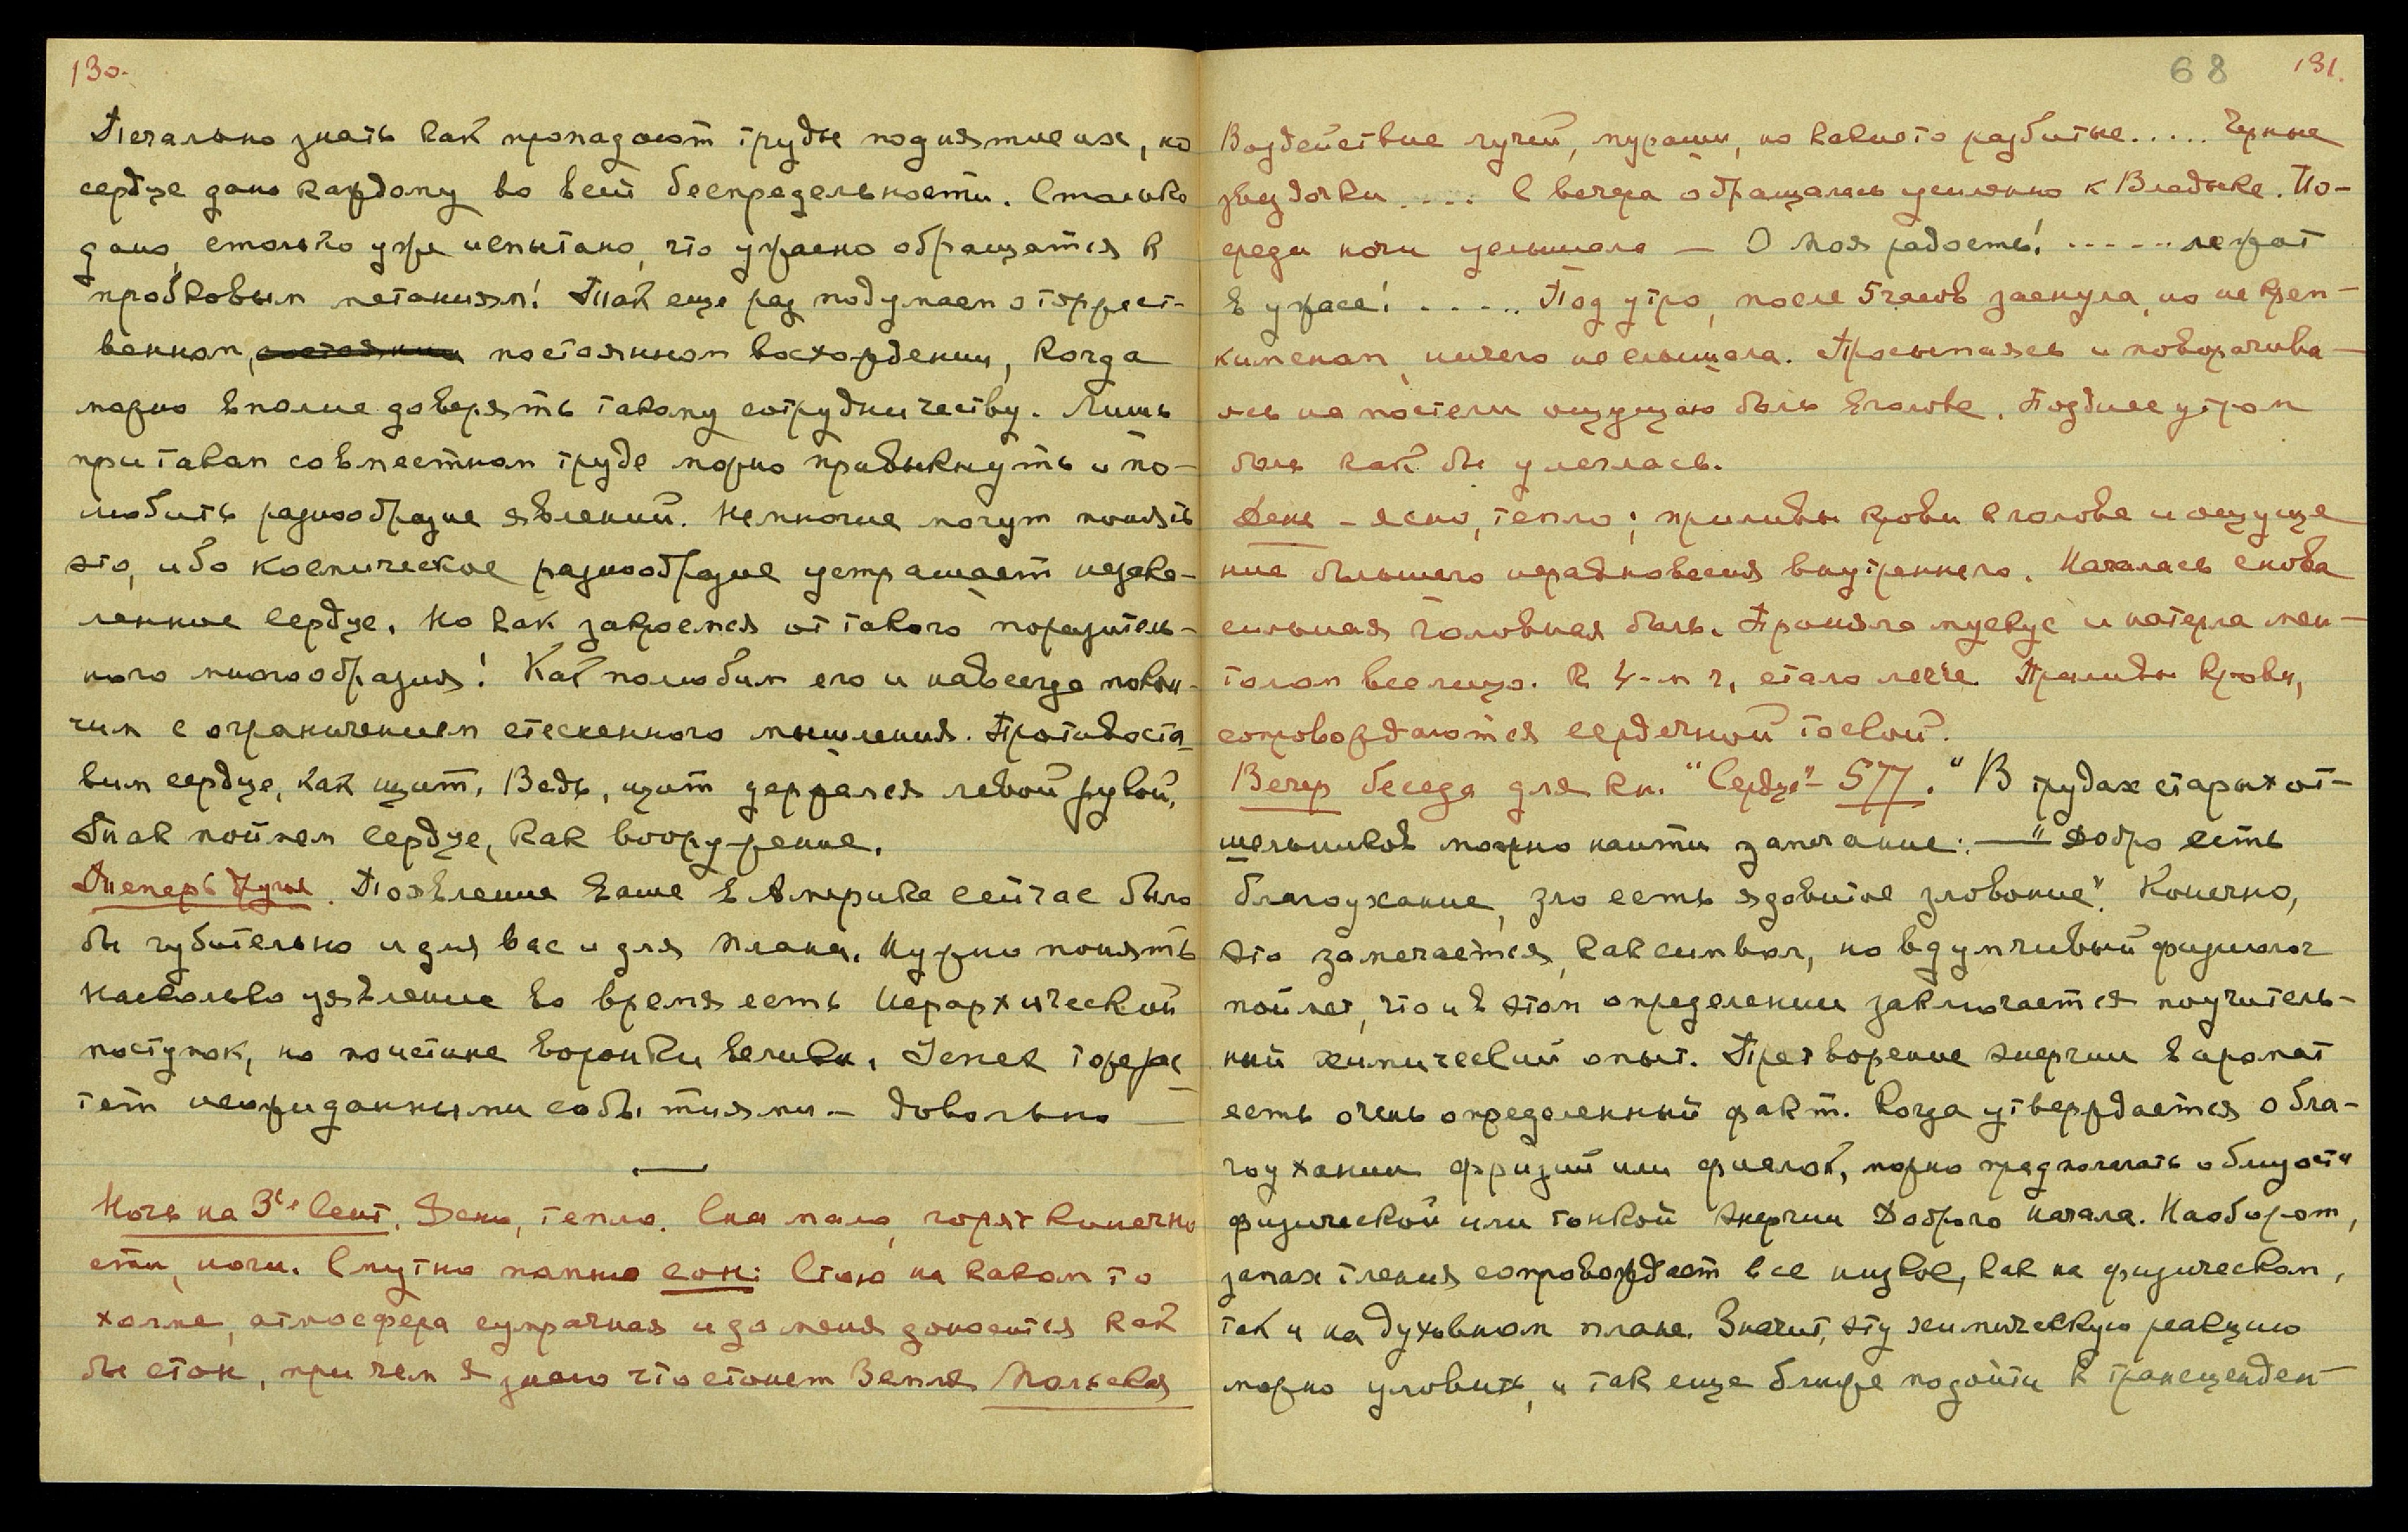 130.
Печально знать как пропадают труды поднятые их, но
сердце дано каждому во всей беспредельности. Столько
дано, столько уже испытано, что ужасно обращаться к
пробковым метаниям! Так еще раз подумаем о торжест-
венном, состоянии постоянном восхождении, когда
можно вполне доверять такому сотрудничеству. Лишь
при таком совместном труде можно привыкнуть и по-
любить разнообразие явлений. Немногие могут понять
это, ибо космическое разнообразие устрашает незака-
ленные сердце. Но как закроемся от такого поразитель-
ного многообразия! Как полюбим его и навсегда покон-
чим с ограничением стесненного мышления. Противоста-
вим сердце, как щит. Ведь, щит держался левой рукой,
Так поймем сердце, как вооружение.
Теперь другое. Появление Ваше в Америке сейчас было
бы губительно и для вас и для плана. Нужно понять
насколько уявление во время есть Иерархический
поступок, но поистине воронки велики. Успех торжес
тет неожиданными событиями — довольно —
Ночь на 3ье Сент. День, тепло. Сна мало, горят конечно
сти, ночи. Смутно помню сон: Стою на каком то
холме, атмосфера сумрачная и до меня доносится как
бы стон, при чем я знаю что стонет Земля Польская
68
131.
Воздействие лучей, мураши, но какието разбитые..... Черные
звездочки .... С вечера обращалась усиленно к Владыке. По-
среди ночи услышала — О Моя радость! ..... лежат
в ужасе! ..... Под утро, после 5 часов заснула, но не креп-
ким сном, ничего не слышала. Просыпаясь и поворачива-
ясь на постели ощущаю боль в голове. Позднее утром
боль как бы улеглась.
День – ясно, тепло; приливы крови к голове и ощуще
ние большого неравновесия внутреннего. Началась снова
сильная головная боль. Приняла мускус и натерла мен-
толом все лицо. К 4-м ч. стало легче Приливы крови,
сопровождаются сердечной тоской.
Вечер беседа для кн. "Сердце" – 577. "В трудах старых от-
шельников можно найти замечание: — "Добро есть
благоухание, зло есть ядовитое зловоние". Конечно,
это замечается, как символ, но вдумчивый физиолог
поймет, что и в этом определении заключается поучитель-
ный химический опыт. Претворение энергии в аромат
есть очень определенный факт. Когда утверждается о бла-
гоухании фризий или фиалок, можно предполагать о близости
физической или тонкой энергии Доброго Начала. Наоборот,
запах тления сопровождает все низкое, как на физическом,
так и на духовном плане. Значит, эту химическую реакцию
можно уловить, и так еще ближе подойти к трансценден-